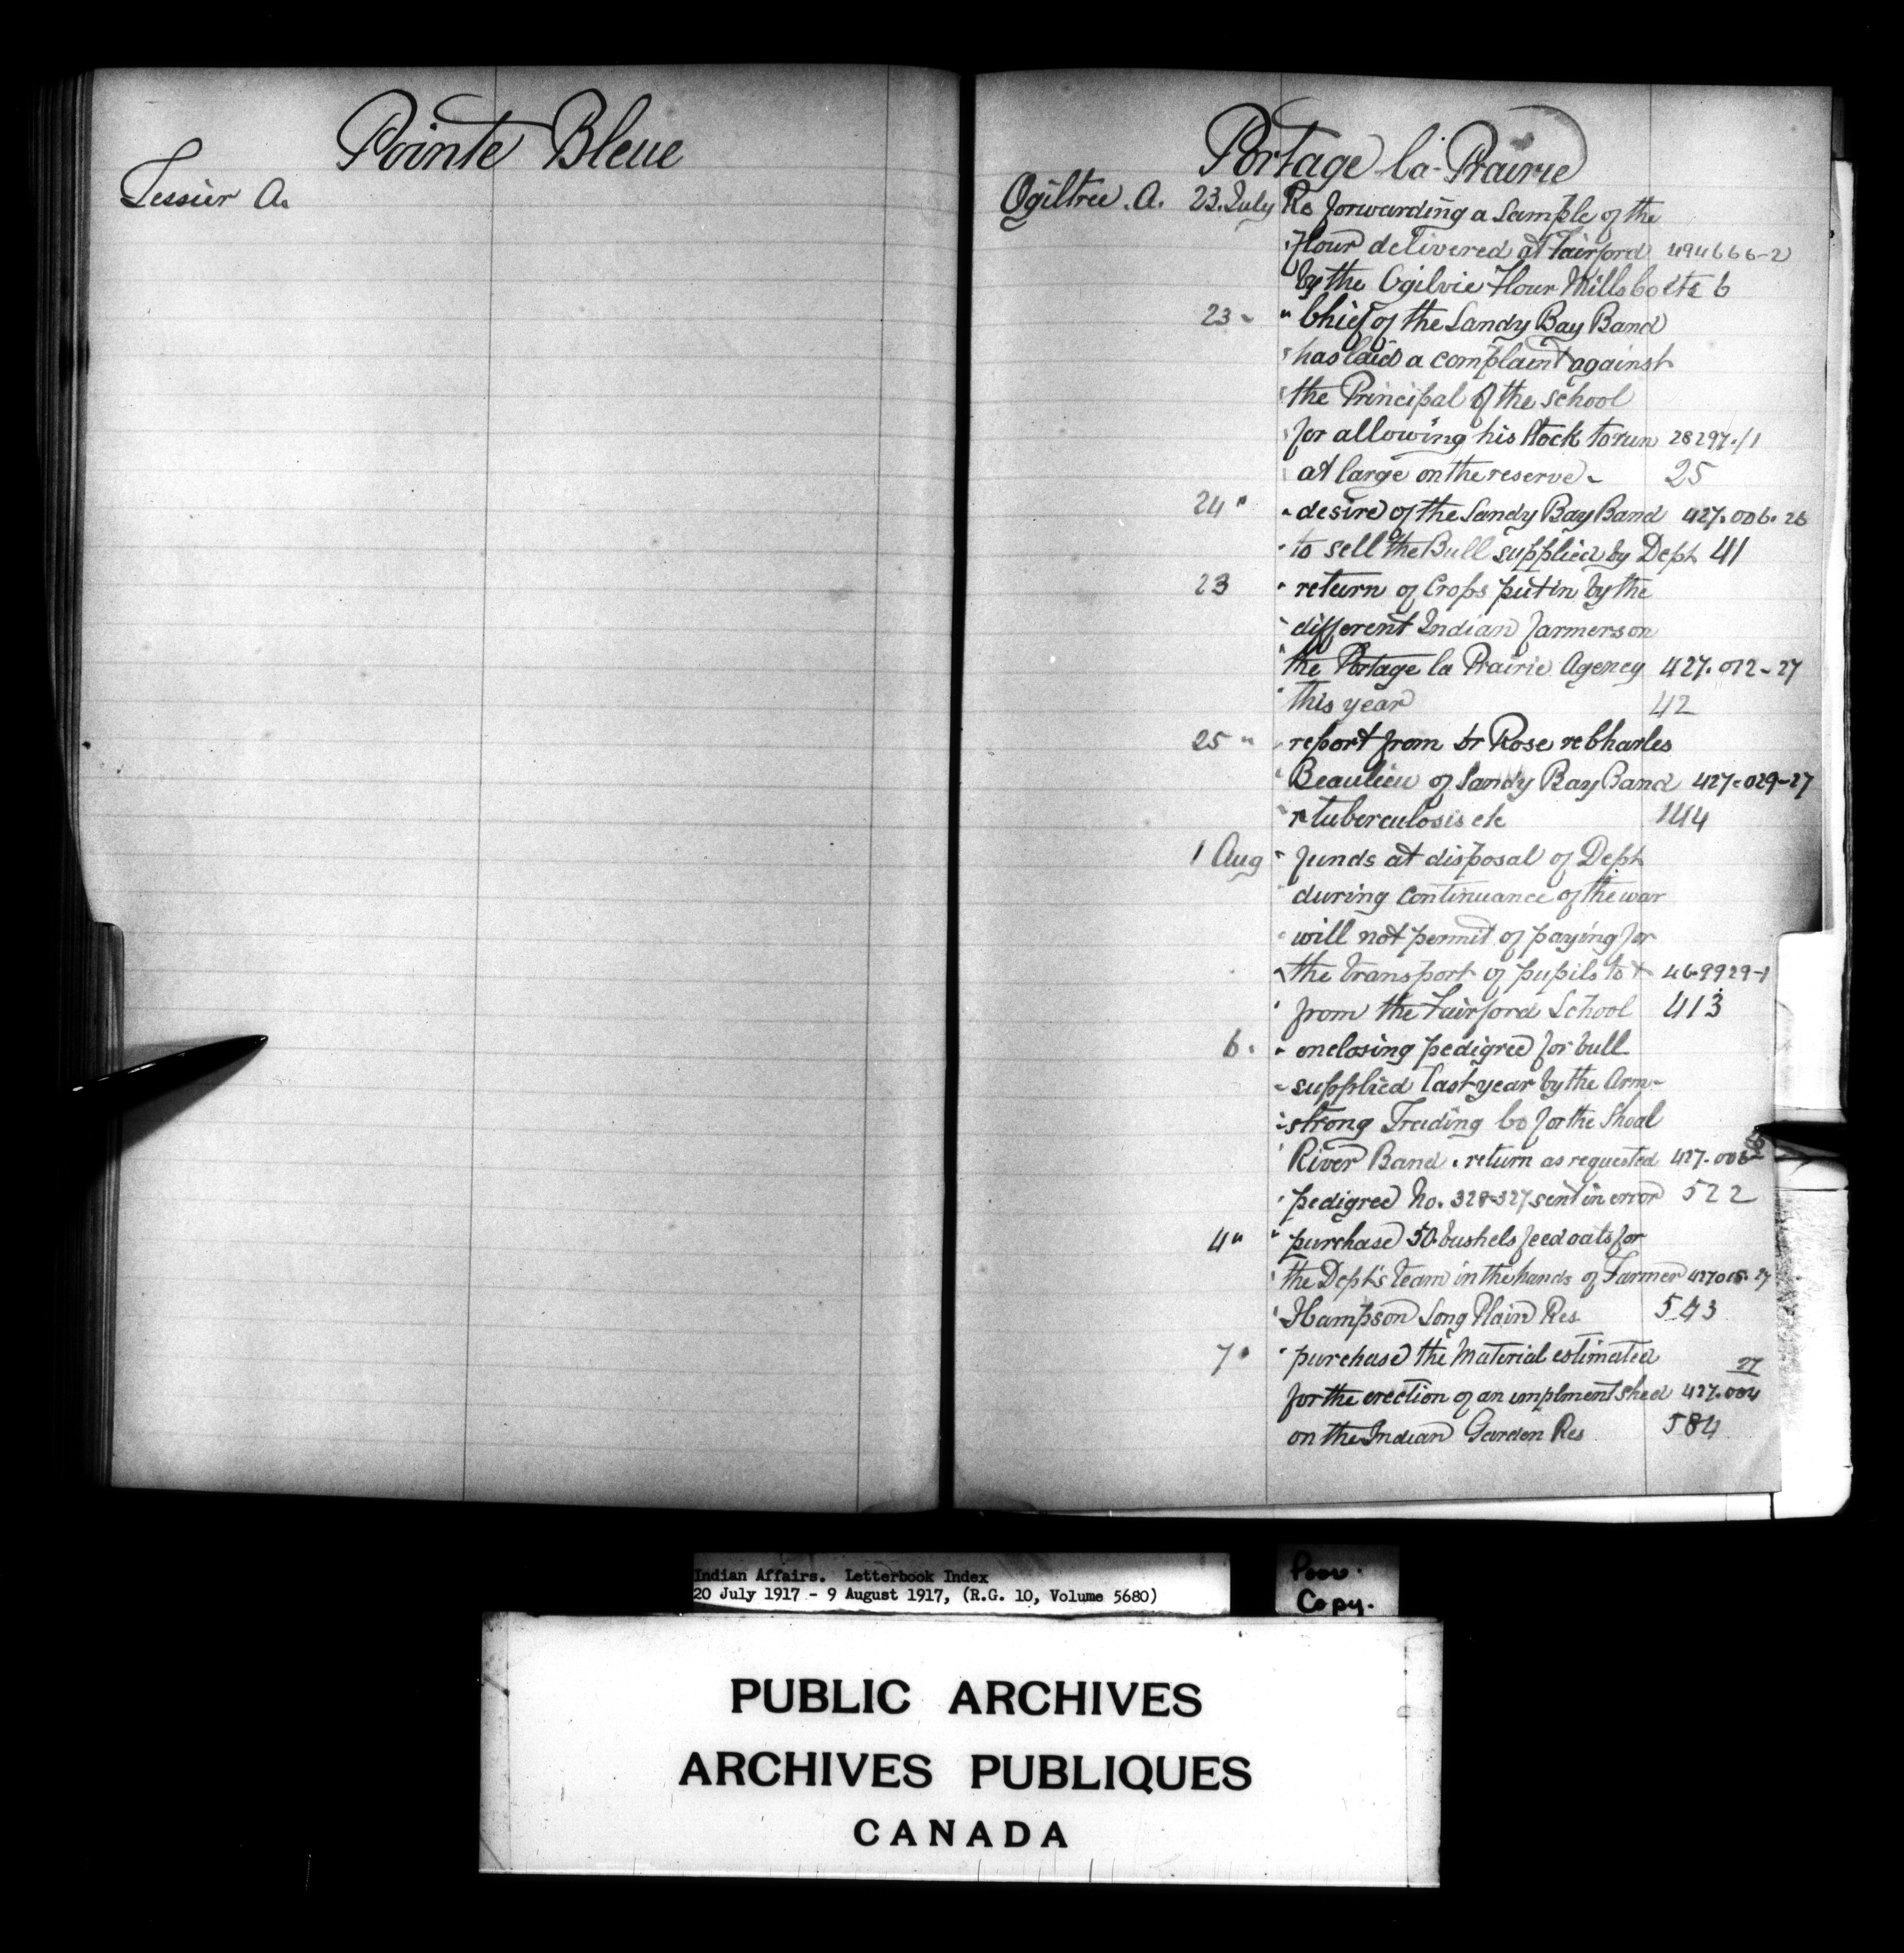 Pointe Bleue
Tessier A.
Portage la-Prairie
Ogiltree. A. 23. July Re forwarding a sample of the
flour delivered at Fairford 494666-2
by the Ogilvie Flour Mills Co etc 6
23 " " Chief of the Sandy Bay Band
" has laid a complaint against
" the Principal of the school
" for allowing his stock to run 28297-/1
" at large on the reserve - 25
24 " " desire of the Sandy Bay Band 427.006.26
" to sell the Bull supplied by Dept 41
23 " return of Crops put in by the
" different Indian farmers on
" the Portage la Prairie Agency 427.012-27
" this year 42
25 " " report from Dr Rose re Charles
" Beaulieu of Sandy Bay Band 427-029-27
" r tuberculosis etc 144
1 Aug " funds at disposal of Dept
" during continuance of the war
" will not permit of paying for
" the transport of pupils to + 469929-1
" from the Fairford School 413
6 . " enclosing pedigree for bull
" supplied last year by the Arm-
" strong Trading Co for the Shoal
" River Band . return as requested 427.006-
" pedigree No. 328-327 sent in error 522
4 " " purchase 50 bushels feed oats for
" the Dept's team in the hands of Farmer 427015.27
" Hampson Long Plain Res 543
7 " " purchase the Material estimated 27
for the erection of an implment shed 427.004
on the Indian Garden Res 584
Indian Affairs. Letterbook Index
20 July 1917 - 9 August 1917, (R.G. 10, Volume 5680)
Poor.
Copy.
PUBLIC ARCHIVES
ARCHIVES PUBLIQUES
CANADA